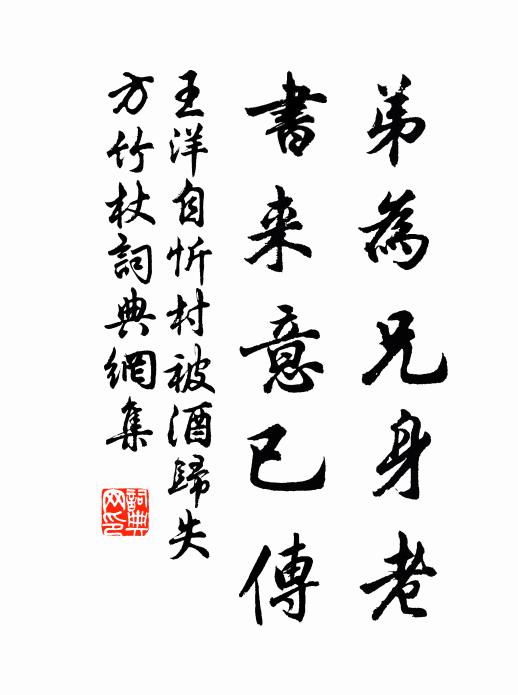 弟為兄身老
書来意已傳
王洋自忻村被酒歸失
方竹杖詞典網集
詞典
网印